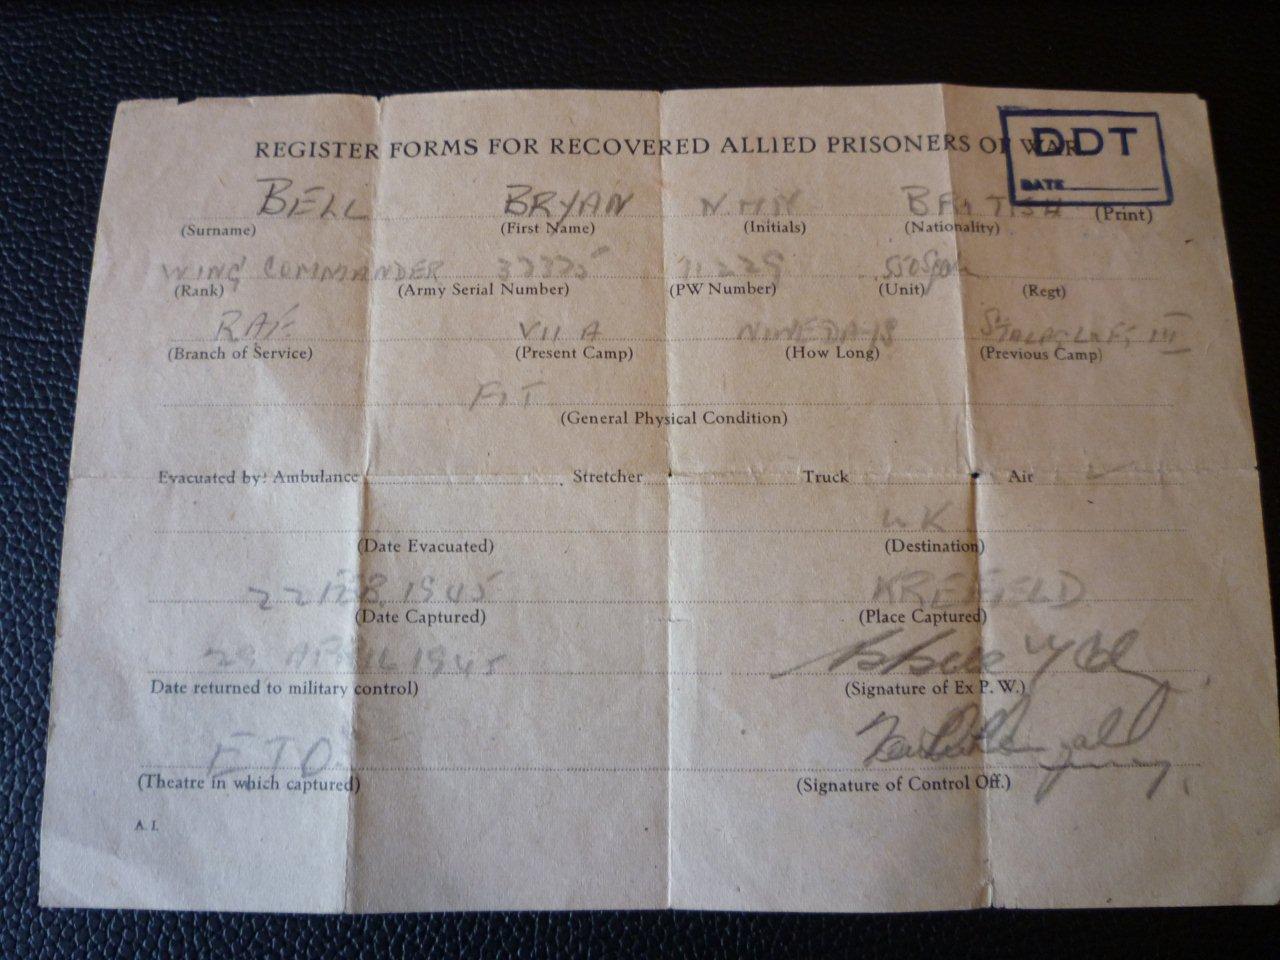 REGISTER FORMS FOR RECOVERED ALLIED PRISONERS OF WAR
DDT
DATE
BELL BRYAN NMN BRITISH (Print)
(Surname) (First Name) (Initials) (Nationality)
WING COMMANDER 37775 550 Sqdn
(Rank) (Army Serial Number) (PW Number) (Unit) (Regt)
RAF VII A NINE DAYS STALAG LUFT III
(Branch of Service) (Present Camp) (How Long) (Previous Camp)
FIT
(General Physical Condition)
Evacuated by: Ambulance Stretcher Truck Air ✓
UK
(Date Evacuated) (Destination)
22 FEB. 1945 KREFELD
(Date Captured) (Place Captured)
29 APRIL 1945
Date returned to military control) (Signature of Ex P. W.)
ETO
(Theatre in which captured) (Signature of Control Off.)
A. I.